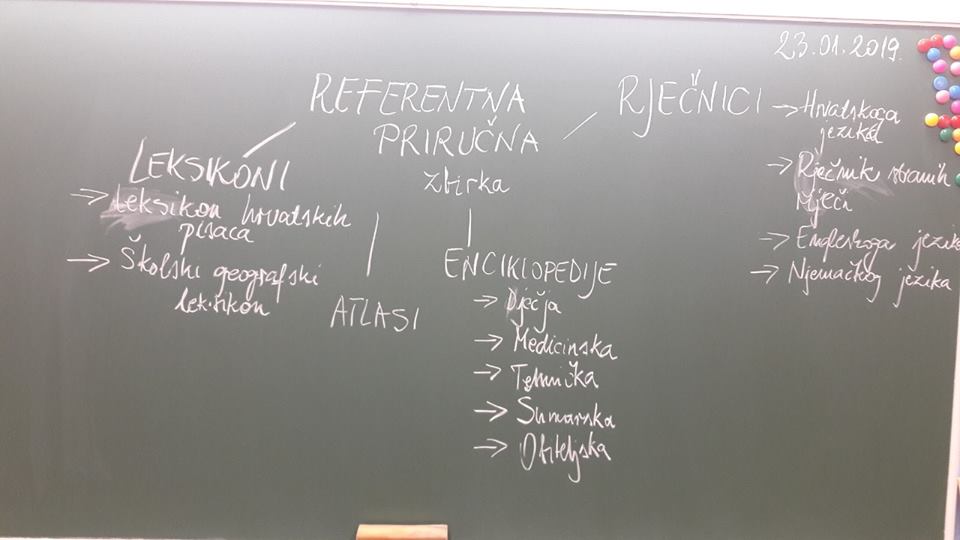 23.01.2019.
REFERENTNA
PRIRUČNA
zbirka
LEKSIKONI
→ Leksikon hrvatskih
pisaca
→ Školski geografski
leksikon
ATLASI
ENCIKLOPEDIJE
→ Dječja
→ Medicinska
→ Tehnička
→ Šumarska
→ Obiteljska
RJEČNICI
→ Hrvatskoga
jezika
→ Rječnik stranih
riječi
→ Engleskoga jezika
→ Njemačkog jezika